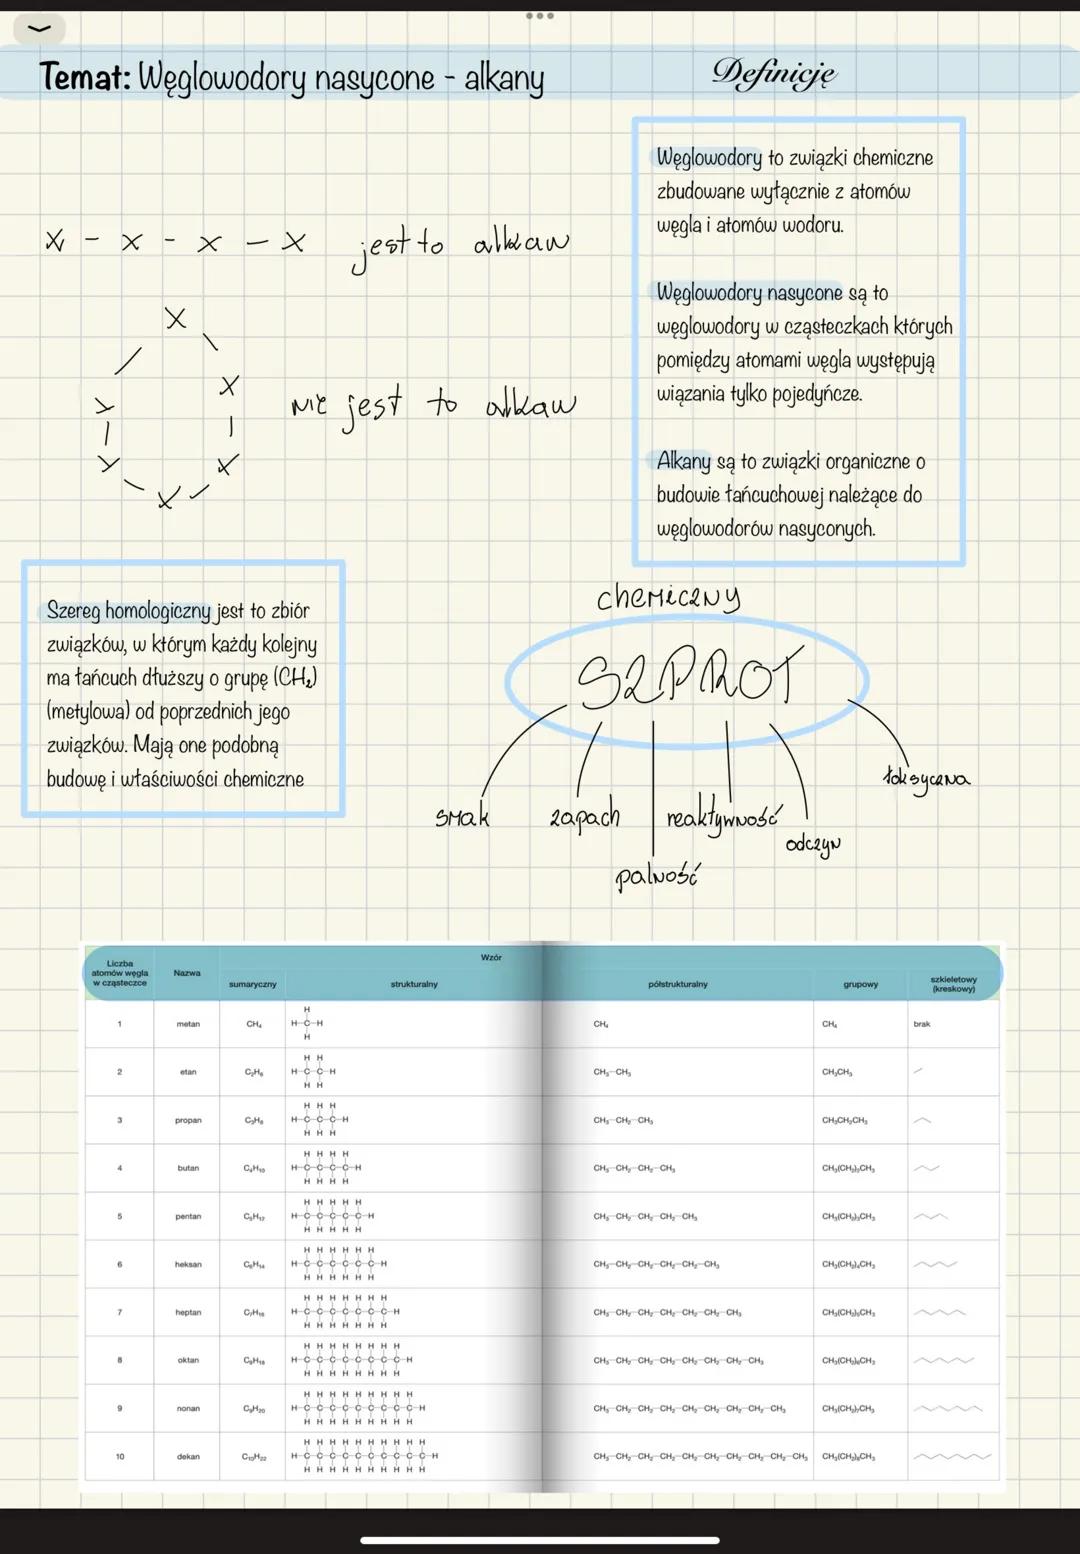 Temat: Węglowodory nasycone - alkany
Definicję
Węglowodory to związki chemiczne
zbudowane wyłącznie z atomów
węgla i atomów wodoru.
Węglowodory nasycone są to
węglowodory w cząsteczkach których
pomiędzy atomami węgla występują
wiązania tylko pojedyńcze.
Alkany są to związki organiczne o
budowie łańcuchowej należące do
węglowodorów nasyconych.
x - x - x - x jest to alkan
x
x
x
x
x
x
nie jest to alkan
Szereg homologiczny jest to zbiór
związków, w którym każdy kolejny
ma łańcuch dłuższy o grupę (CH₂)
(metylowa) od poprzednich jego
związków. Mają one podobną
budowę i właściwości chemiczne
chemiczny
SZPROT
smak
zapach
palność
reaktywność
odczyn
toksyczna
Liczba atomów węgla w cząsteczce Nazwa Wzór
sumaryczny strukturalny półstrukturalny grupowy szkieletowy (kreskowy)
H
1 metan CH₄ H-C-H CH₄ CH₄ brak
H
H H
2 etan C₂H₆ H-C-C-H CH₃-CH₃ CH₃CH₃
H H
H H H
3 propan C₃H₈ H-C-C-C-H CH₃-CH₂-CH₃ CH₃CH₂CH₃
H H H
H H H H
4 butan C₄H₁₀ H-C-C-C-C-H CH₃-CH₂-CH₂-CH₃ CH₃(CH₂)₂CH₃
H H H H
H H H H H
5 pentan C₅H₁₂ H-C-C-C-C-C-H CH₃-CH₂-CH₂-CH₂-CH₃ CH₃(CH₂)₃CH₃
H H H H H
H H H H H H
6 heksan C₆H₁₄ H-C-C-C-C-C-C-H CH₃-CH₂-CH₂-CH₂-CH₂-CH₃ CH₃(CH₂)₄CH₃
H H H H H H
H H H H H H H
7 heptan C₇H₁₆ H-C-C-C-C-C-C-C-H CH₃-CH₂-CH₂-CH₂-CH₂-CH₂-CH₃ CH₃(CH₂)₅CH₃
H H H H H H H
H H H H H H H H
8 oktan C₈H₁₈ H-C-C-C-C-C-C-C-C-H CH₃-CH₂-CH₂-CH₂-CH₂-CH₂-CH₂-CH₃ CH₃(CH₂)₆CH₃
H H H H H H H H
H H H H H H H H H
9 nonan C₉H₂₀ H-C-C-C-C-C-C-C-C-C-H CH₃-CH₂-CH₂-CH₂-CH₂-CH₂-CH₂-CH₂-CH₃ CH₃(CH₂)₇CH₃
H H H H H H H H H
H H H H H H H H H H
10 dekan C₁₀H₂₂ H-C-C-C-C-C-C-C-C-C-C-H CH₃-CH₂-CH₂-CH₂-CH₂-CH₂-CH₂-CH₂-CH₂-CH₃ CH₃(CH₂)₈CH₃
H H H H H H H H H H